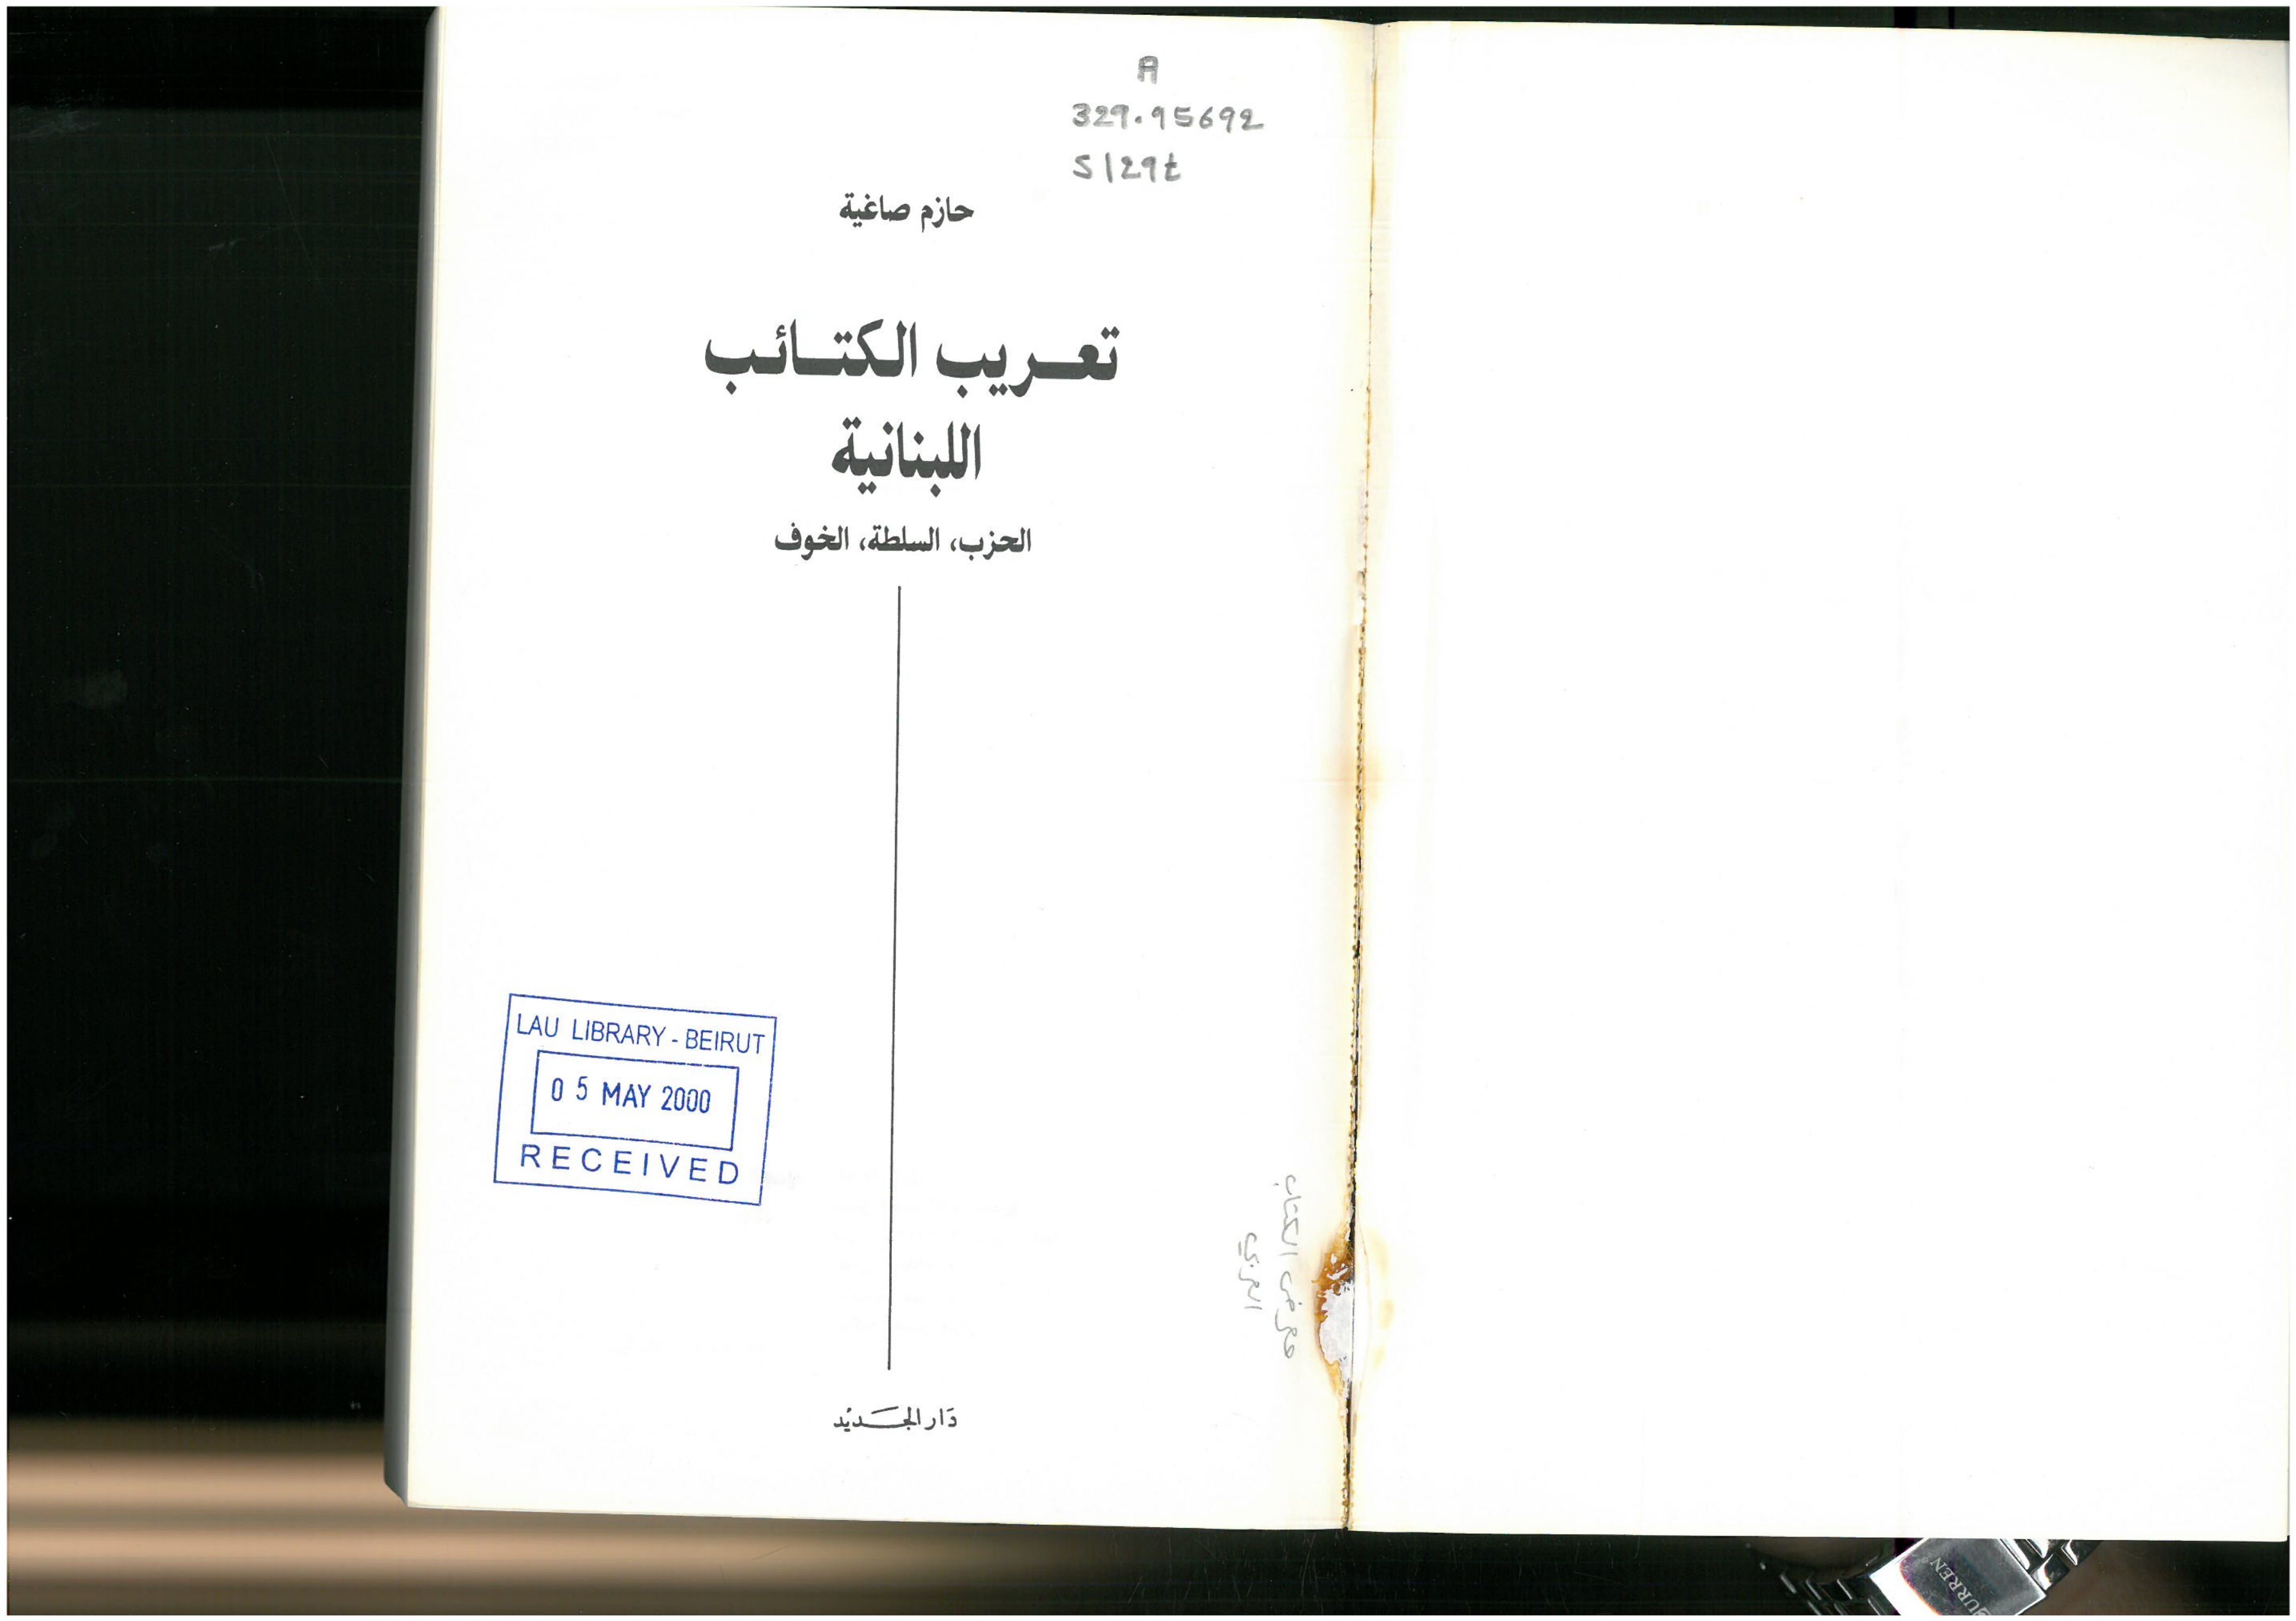 A
329.95692
S129t
حازم صاغية
تعريب الكتائب
اللبنانية
الحزب، السلطة، الخوف
LAU LIBRARY - BEIRUT
05 MAY 2000
RECEIVED
معرض الكتاب
العربي
دَار الجَديْد
CURREN